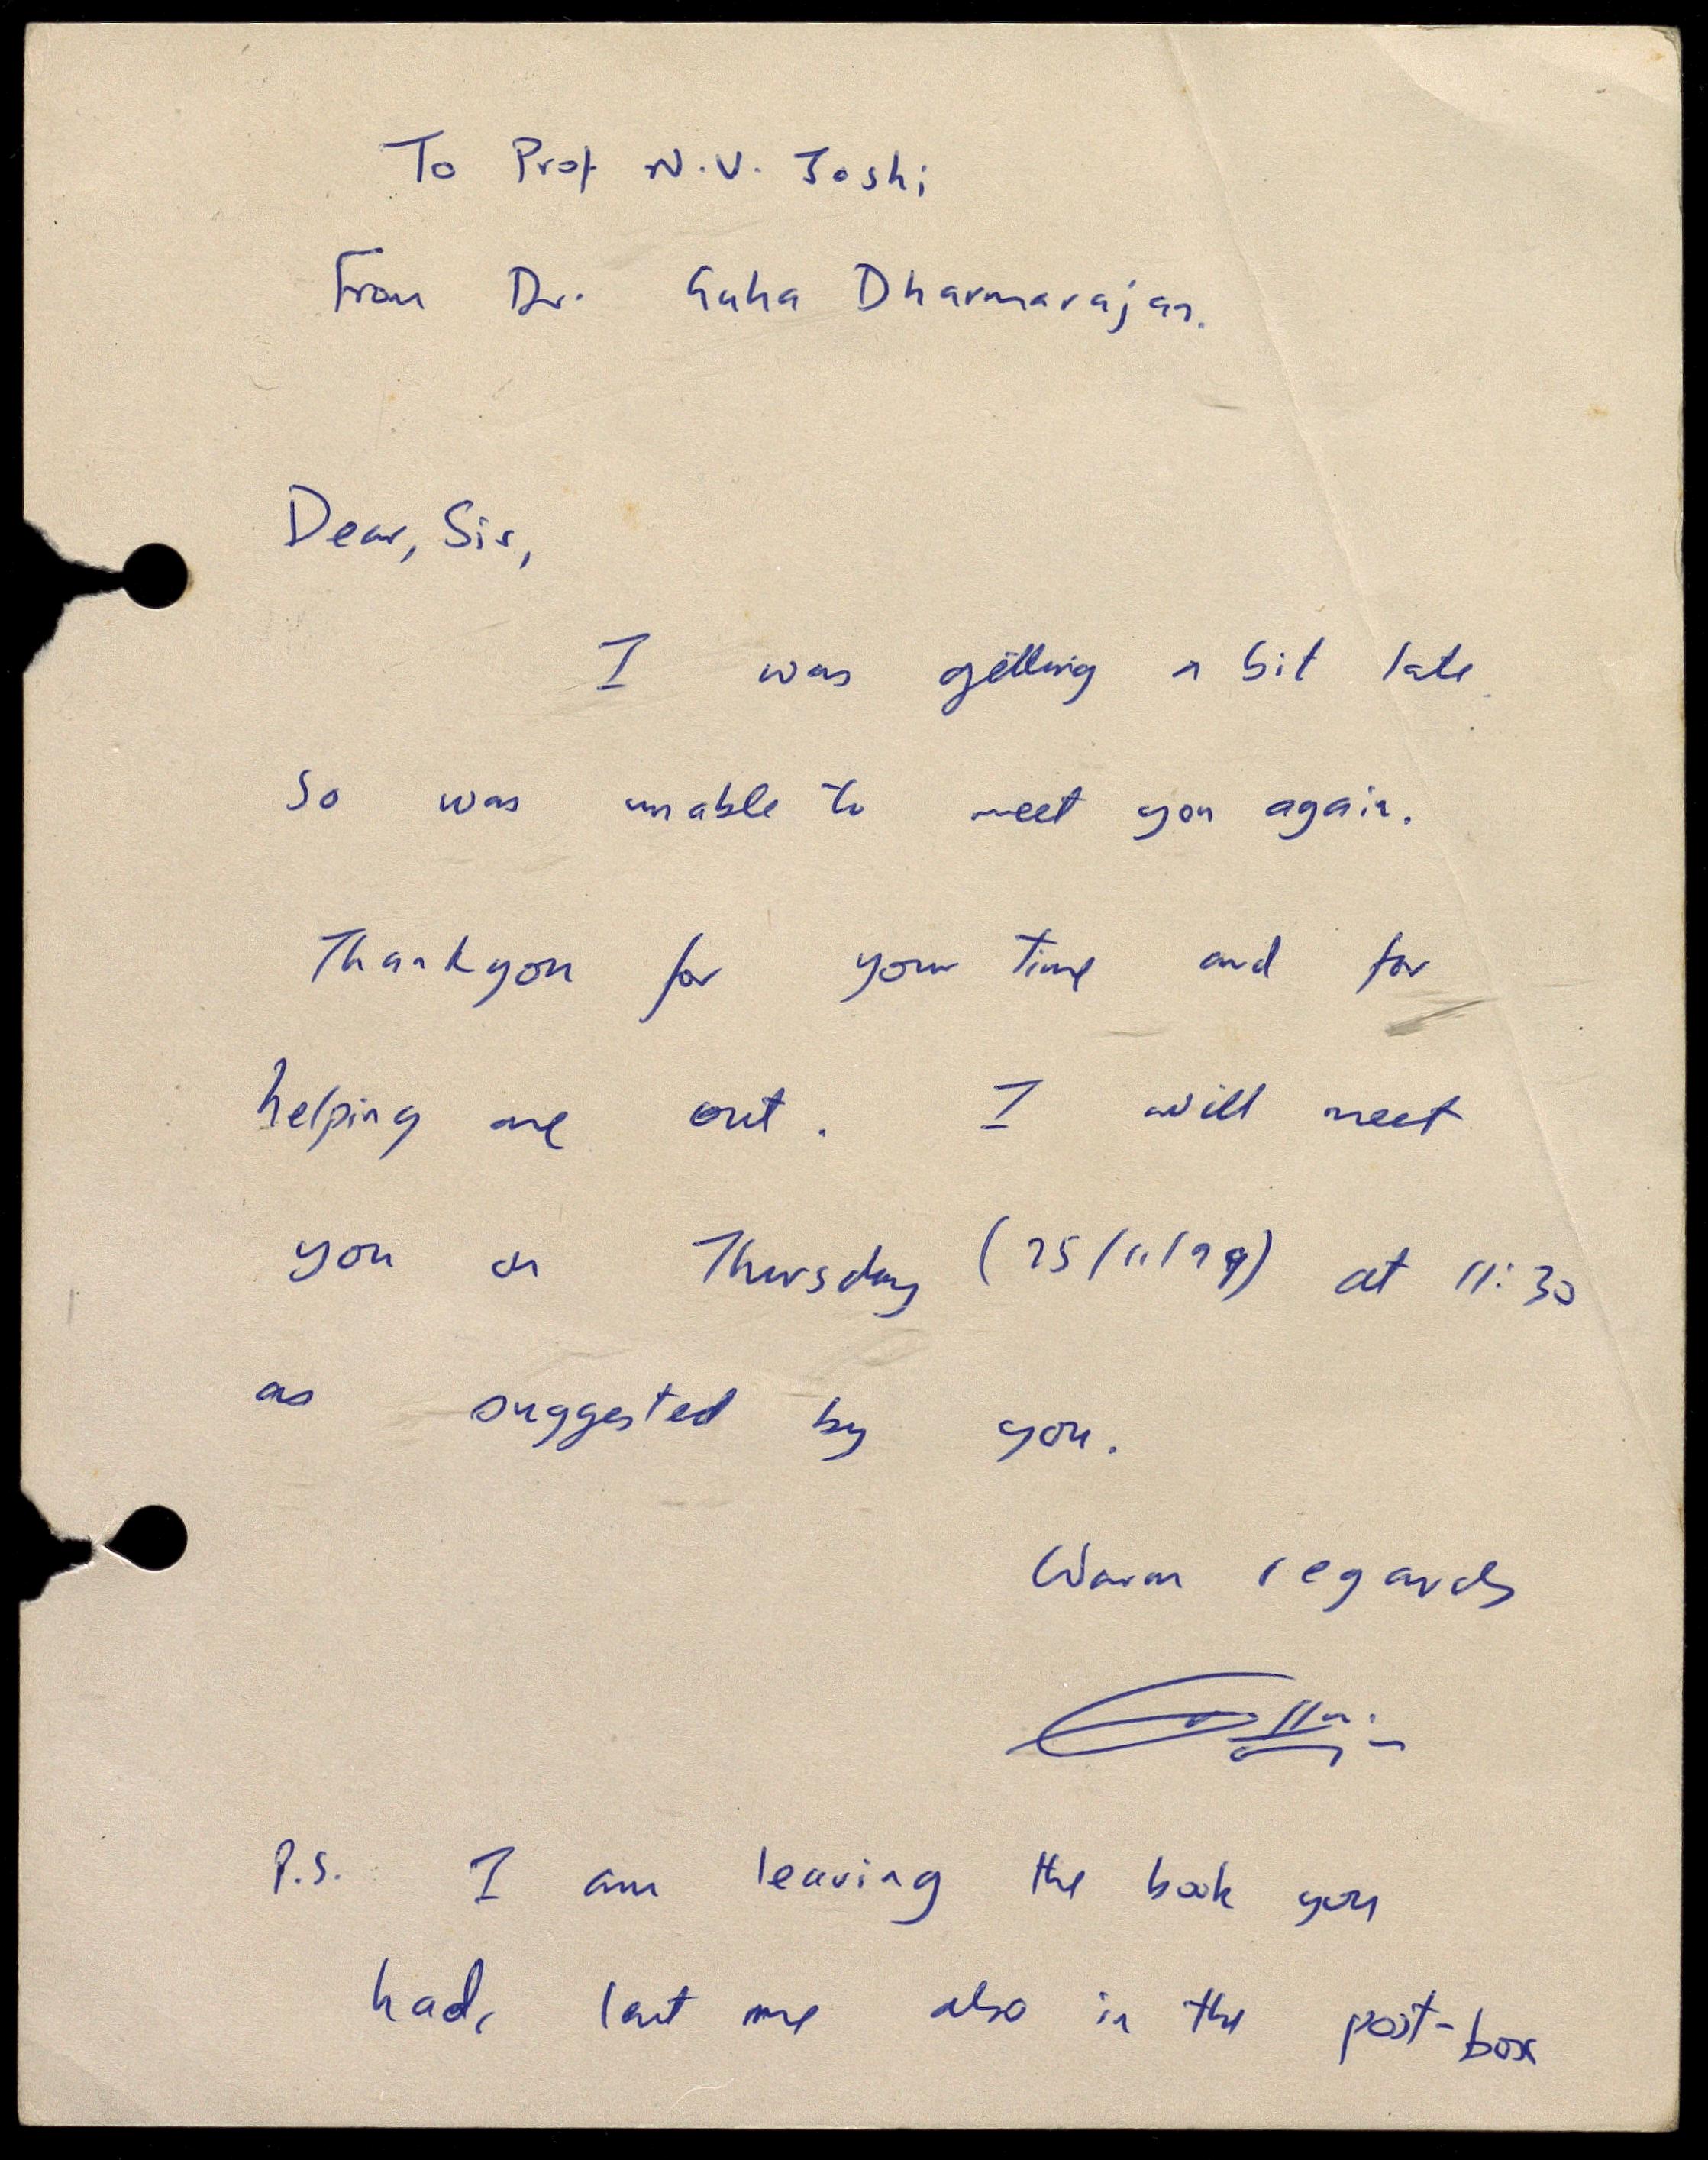 To Prof N.V. Joshi
From Dr. Guha Dharmarajan.
Dear, Sir,
I was getting a bit late
So was unable to meet you again.
Thankyou for your time and for
helping me out. I will meet
you on Thursday (25/11/99) at 11:30
as suggested by you.
Warm regards
P.S. I am leaving the book you
had, lent me also in the post-box